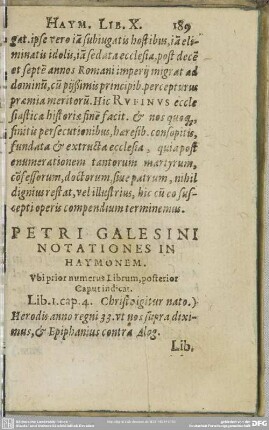 HAYM. LIB. X. 189
gat. ipse vero iā subiugatis hostibus, iā eli-
minatis idolis, iā sedata ecclesia, post decē
et septē annos Romani imperij migrat ad
dominū, cū pijssimis principib. percepturus
præmia meritorū. Hic RVFINVS eccle
siastica historiæ finē facit. & nos quoq,
finitis persecutionibus, hæresib. consopitis,
fundata & extructa ecclesia, quia post
enumerationem tantorum martyrum,
cōfessorum, doctorum, siue patrum, nihil
dignius restat, vel illustrius, hic cū eo sus-
cepti operis compendium terminemus.
PETRI GALESINI
NOTATIONES IN
HAYMONEM.
Vbi prior numerus Librum, posterior
Caput indicat.
Lib. 1. cap. 4. Christo igitur nato.)
Herodis anno regni 33. vt nos supra dixi-
mus, & Epiphanius contra Alog.
Lib.